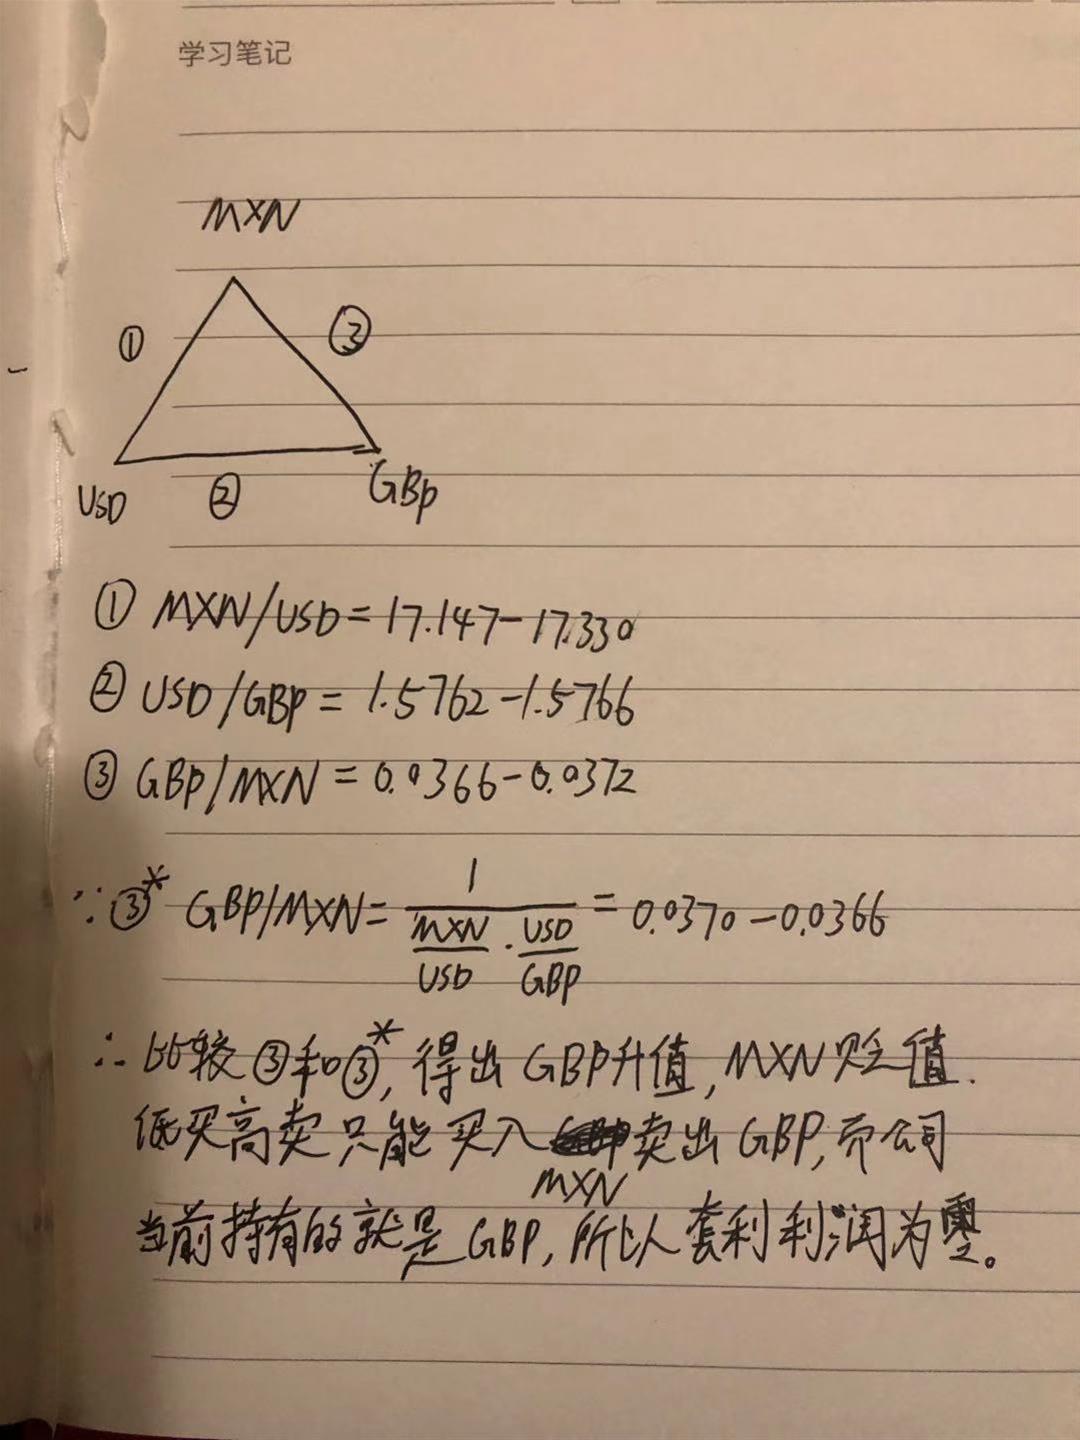 学习笔记
MXN
① ③
USD ② GBP
① MXN/USD = 17.147-17.330
② USD/GBP = 1.5762-1.5766
③ GBP/MXN = 0.0366-0.0372
∵③* GBP/MXN = 1/(MXN/USD · USD/GBP) = 0.0370-0.0366
∴比较③和③*, 得出GBP升值, MXN贬值.
低买高卖只能买入MXN卖出GBP, 而公司
当前持有的就是GBP, 所以套利利润为零。